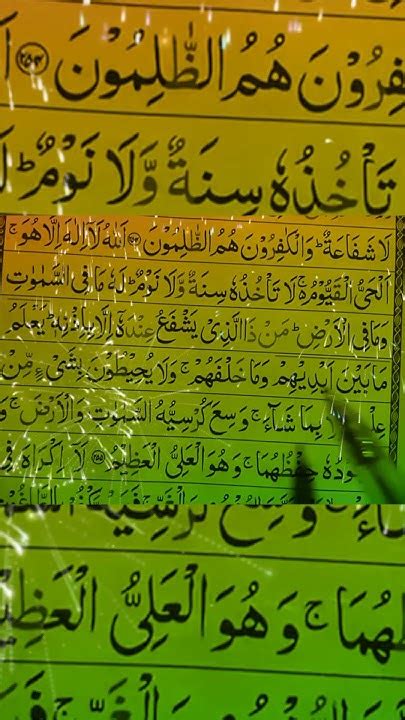 هُمُ الظّٰلِمُوْنَ ﴿٢٥٤﴾
تَاْخُذُهٗ سِنَةٌ وَّلَا نَوْمٌؕ
لَا شَفَاعَةٌؕ وَالْكٰفِرُوْنَ هُمُ الظّٰلِمُوْنَ ﴿٢٥٤﴾ اَللّٰهُ لَاۤ اِلٰهَ اِلَّا هُوَۚ
اَلْحَیُّ الْقَیُّوْمُ۬ۚ لَا تَاْخُذُهٗ سِنَةٌ وَّلَا نَوْمٌؕ لَهٗ مَا فِی السَّمٰوٰتِ
وَمَا فِی الْاَرْضِؕ مَنْ ذَا الَّذِیْ یَشْفَعُ عِنْدَهٗۤ اِلَّا بِاِذْنِهٖؕ یَعْلَمُ
مَا بَیْنَ اَیْدِیْهِمْ وَمَا خَلْفَهُمْۚ وَلَا یُحِیْطُوْنَ بِشَیْءٍ مِّنْ
بِمَا شَآءَۚ وَسِعَ كُرْسِیُّهُ السَّمٰوٰتِ وَالْاَرْضَۚ وَ
حِفْظُهُمَاۚ وَهُوَ الْعَلِیُّ الْعَظِیْمُ ﴿٢٥٥﴾ لَاۤ اِكْرَاهَ فِی
وَهُوَ الْعَلِیُّ